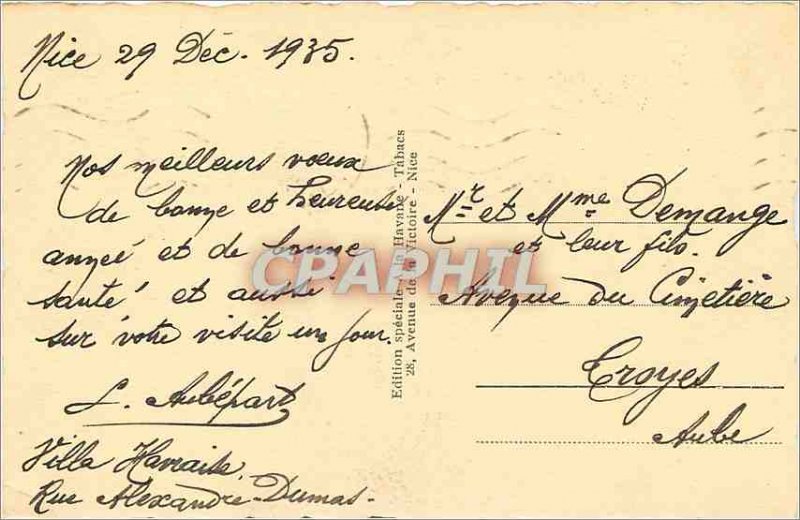 Nice 29 Déc. 1935.
Nos meilleurs voeux
de bonne et heureuse
année et de bonne
santé et aussi
sur votre visite un jour.
L. Aubépart
Villa Havraise.
Rue Alexandre-Dumas.
Edition spéciale à la Havane - Tabacs
28, Avenue de la Victoire - Nice
CPAPHIL
Mr et Mme Demange
et leur fils.
Avenue du Cimetière
Troyes
Aube